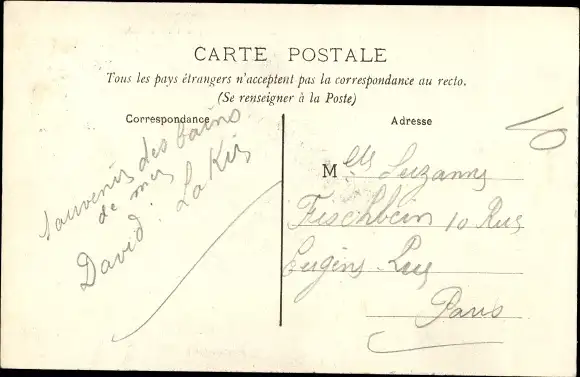 CARTE POSTALE
Tous les pays étrangers n'acceptent pas la correspondance au recto.
(Se renseigner à la Poste)
Correspondance
Souvenir des bains
de mer
David.
Adresse
Mlle Suzanne
Fischbein 10 Rue
Eugène
Paris